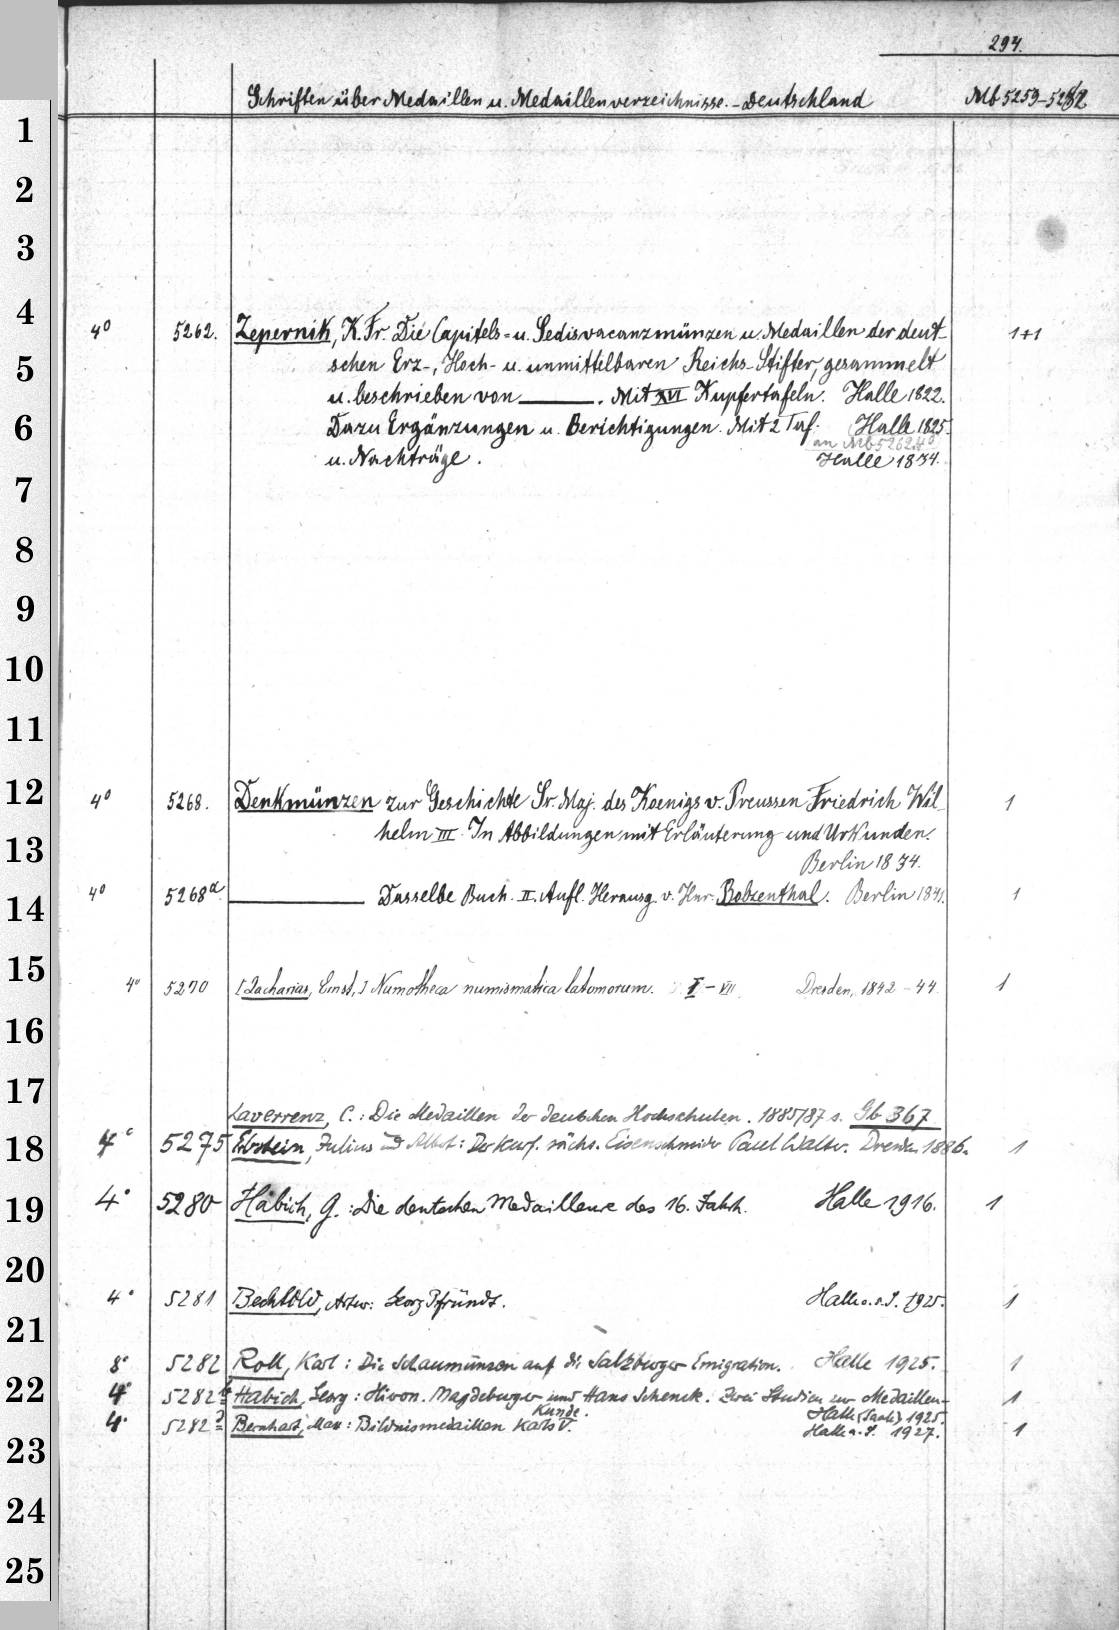 294.
Schriften über Medaillen u. Medaillenverzeichnisse. - Deutschland Mb 5259-5282
1
2
3
4
4° 5262. Zepernik, K. Fr. Die Capitels- u. Sedisvacanzmünzen u. Medaillen der deut- 1+1
5
schen Erz-, Hoch- u. unmittelbaren Reichs-Stifter, gesammelt
u. beschrieben von ———. Mit XVI Kupfertafeln. Halle 1822.
6
Dazu Ergänzungen u. Berichtigungen. Mit 2 Taf. Halle 1825.
an Mb 5262 4°
u. Nachträge. Halle 1834.
7
8
9
10
11
12
4° 5268. Denkmünzen zur Geschichte Sr. Maj. des Koenigs v. Preussen Friedrich Wil- 1
13
helm III. In Abbildungen mit Erläuterung und Urkunden.
Berlin 1834.
14
4° 5268a. ——— Dasselbe Buch. II. Aufl. Herausg. v. Hnr. Bolzenthal. Berlin 1841. 1
15
4° 5270 [Zacharias, Ernst,] Numotheca numismatica latomorum. I - VII. Dresden, 1842 - 44. 1
16
17
Laverrenz, C.: Die Medaillen der deutschen Hochschulen. 1885/87 s. Gb 367
18
4° 5275 Erbstein, Julius und Albert: Der kurf. sächs. Eisenschneider Paul Walter. Dresden 1886. 1
19
4° 5280 Habich, G.: Die deutschen Medailleure des 16. Jahrh. Halle 1916. 1
20
4° 5281 Bechtold, Artur: Georg Pfründt. Halle a. S. 1925. 1
21
8° 5282 Roll, Karl: Die Schaumünzen auf die Salzburger Emigration. Halle 1925. 1
22
4° 5282 Habich, Georg: Hieron. Magdeburger und Hans Schenck. Zwei Studien zur Medaillen- 1
Kunde. Halle (Saale) 1925.
4° 5282 Bernhart, Max: Bildnismedaillen Karls V. Halle a. S. 1927. 1
23
24
25